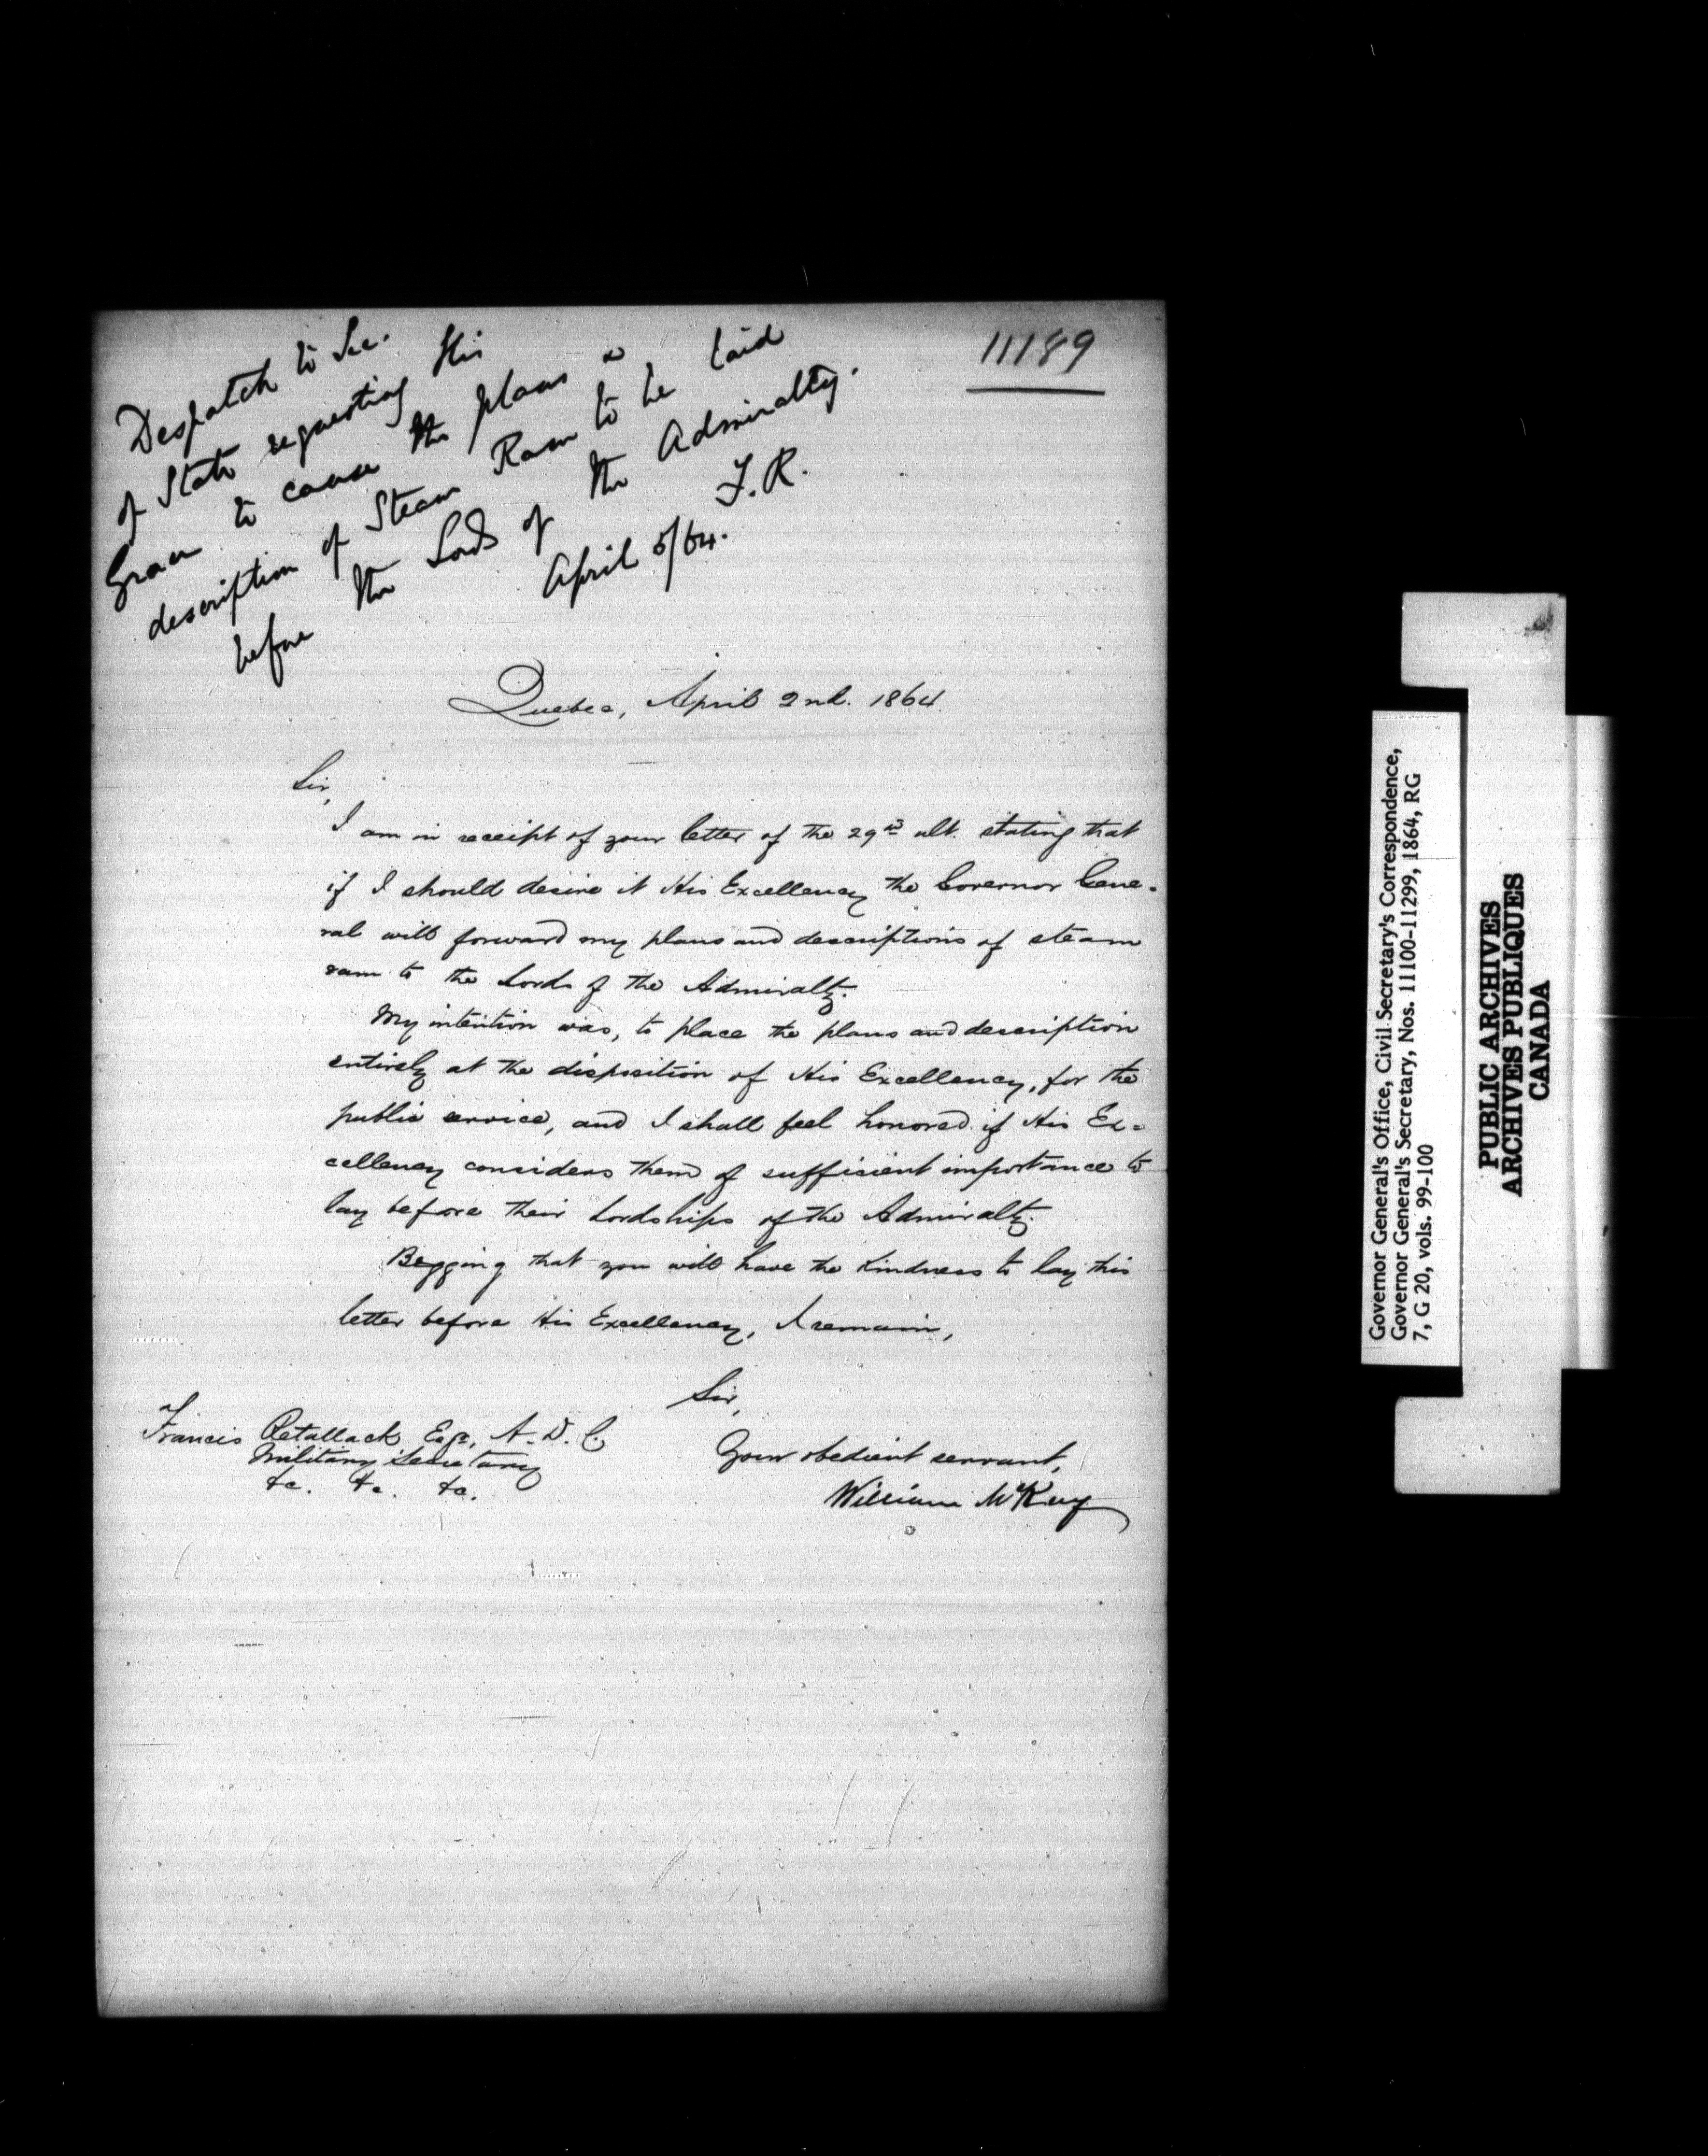 11189
Despatch to Sec.
of State requesting His
Grace to cause the plans &
description of Steam Ram to be laid
before the Lords of the Admiralty.
F.R.
April 5/64.
Quebec, April 2nd. 1864.
Sir,
I am in receipt of your letter of the 29th ult. stating that
if I should desire it His Excellency the Governor Gene-
ral will forward my plans and descriptions of steam
ram to the Lords of the Admiralty.
My intention was, to place the plans and description
entirely at the disposition of His Excellency, for the
public service, and I shall feel honored if His Ex-
cellency considers them of sufficient importance to
lay before their Lordships of the Admiralty.
Begging that you will have the kindness to lay this
letter before His Excellency, I remain,
Sir,
Your obedient servant,
William McKay
Francis Retallack Esqr, A.D.C.
Military Secretary
&c. &c. &c.
Governor General's Office, Civil Secretary's Correspondence,
Governor General's Secretary, Nos. 11100-11299, 1864, RG
7, G 20, vols. 99-100
PUBLIC ARCHIVES
ARCHIVES PUBLIQUES
CANADA